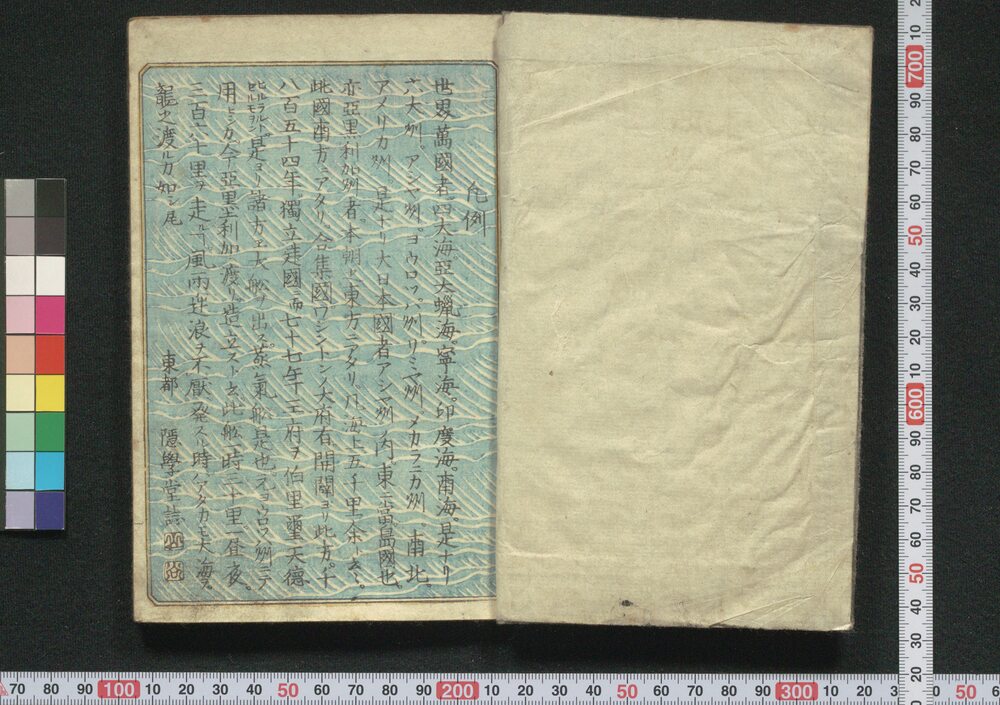 凡例
世界萬國者。四大海。亞大蠟海。寧海。印度海。南海。是ナリ
六大州。アシヤ州。ヨウロツパ州。リミヤ州。メカラニカ州。南北。
アメリカ州。是ナリ大日本國者アシヤ州ノ内。東ニ當島國也。
亦亞黒利加州者。本朝ヨリ東方ニアタリ。凡海上五千里余ト云々。
此國南方ニアタリ。合集國ワシントンノ大府有開闢ヨリ此方。千
八百五十四年。獨立建國而七十七年王府ヲ伯里璽天德。
ヒルラルト
ヒルモヲシ
是ヨリ諸方エ大舩ヲ出ス。蒸氣舩是也。元ヨウロツパ州ニテ
用ヒシカ今亞里利加ニ渡リ造立ストス云此舩一時二十里一昼夜。
三百六十里ヲ走ルヿ風雨逆浪ヲ不厭発スル時ハアタカモ大海ヲ。
龍之渡ルカ如シ尾
東都 隠學堂誌